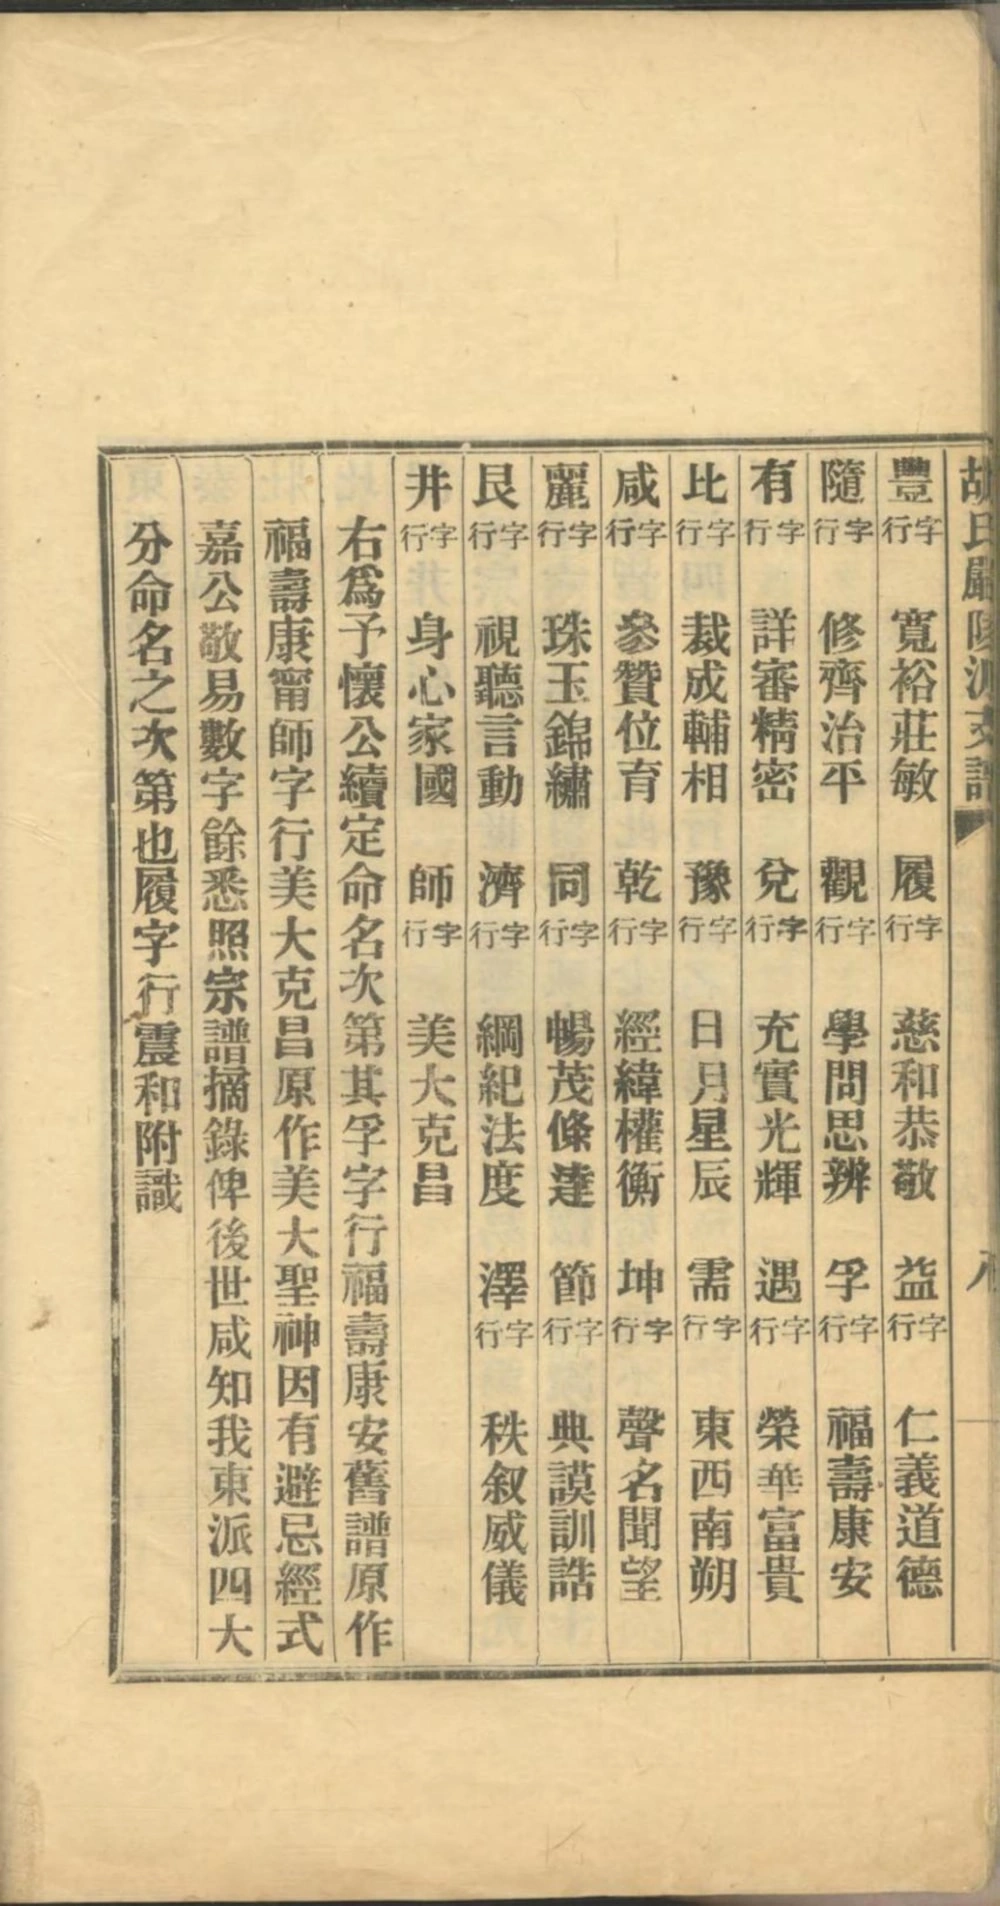 胡氏嚴陵派支譜
豐字行 寬裕莊敏 履字行 慈和恭敬 益字行 仁義道德
隨字行 修齊治平 觀字行 學問思辨 孚字行 福壽康安
有字行 詳審精密 兌字行 充實光輝 遇字行 榮華富貴
比字行 裁成輔相 豫字行 日月星辰 需字行 東西南朔
咸字行 參贊位育 乾字行 經緯權衡 坤字行 聲名聞望
麗字行 珠玉錦繡 同字行 暢茂條達 節字行 典謨訓誥
艮字行 視聽言動 濟字行 綱紀法度 澤字行 秩叙威儀
井字行 身心家國 師字行 美大克昌
右爲予懷公續定命名次第其孚字行福壽康安舊譜原作
福壽康甯師字行美大克昌原作美大聖神因有避忌經式
嘉公敬易數字餘悉照宗譜摘錄俾後世咸知我東派四大
分命名之次第也履字行震和附識